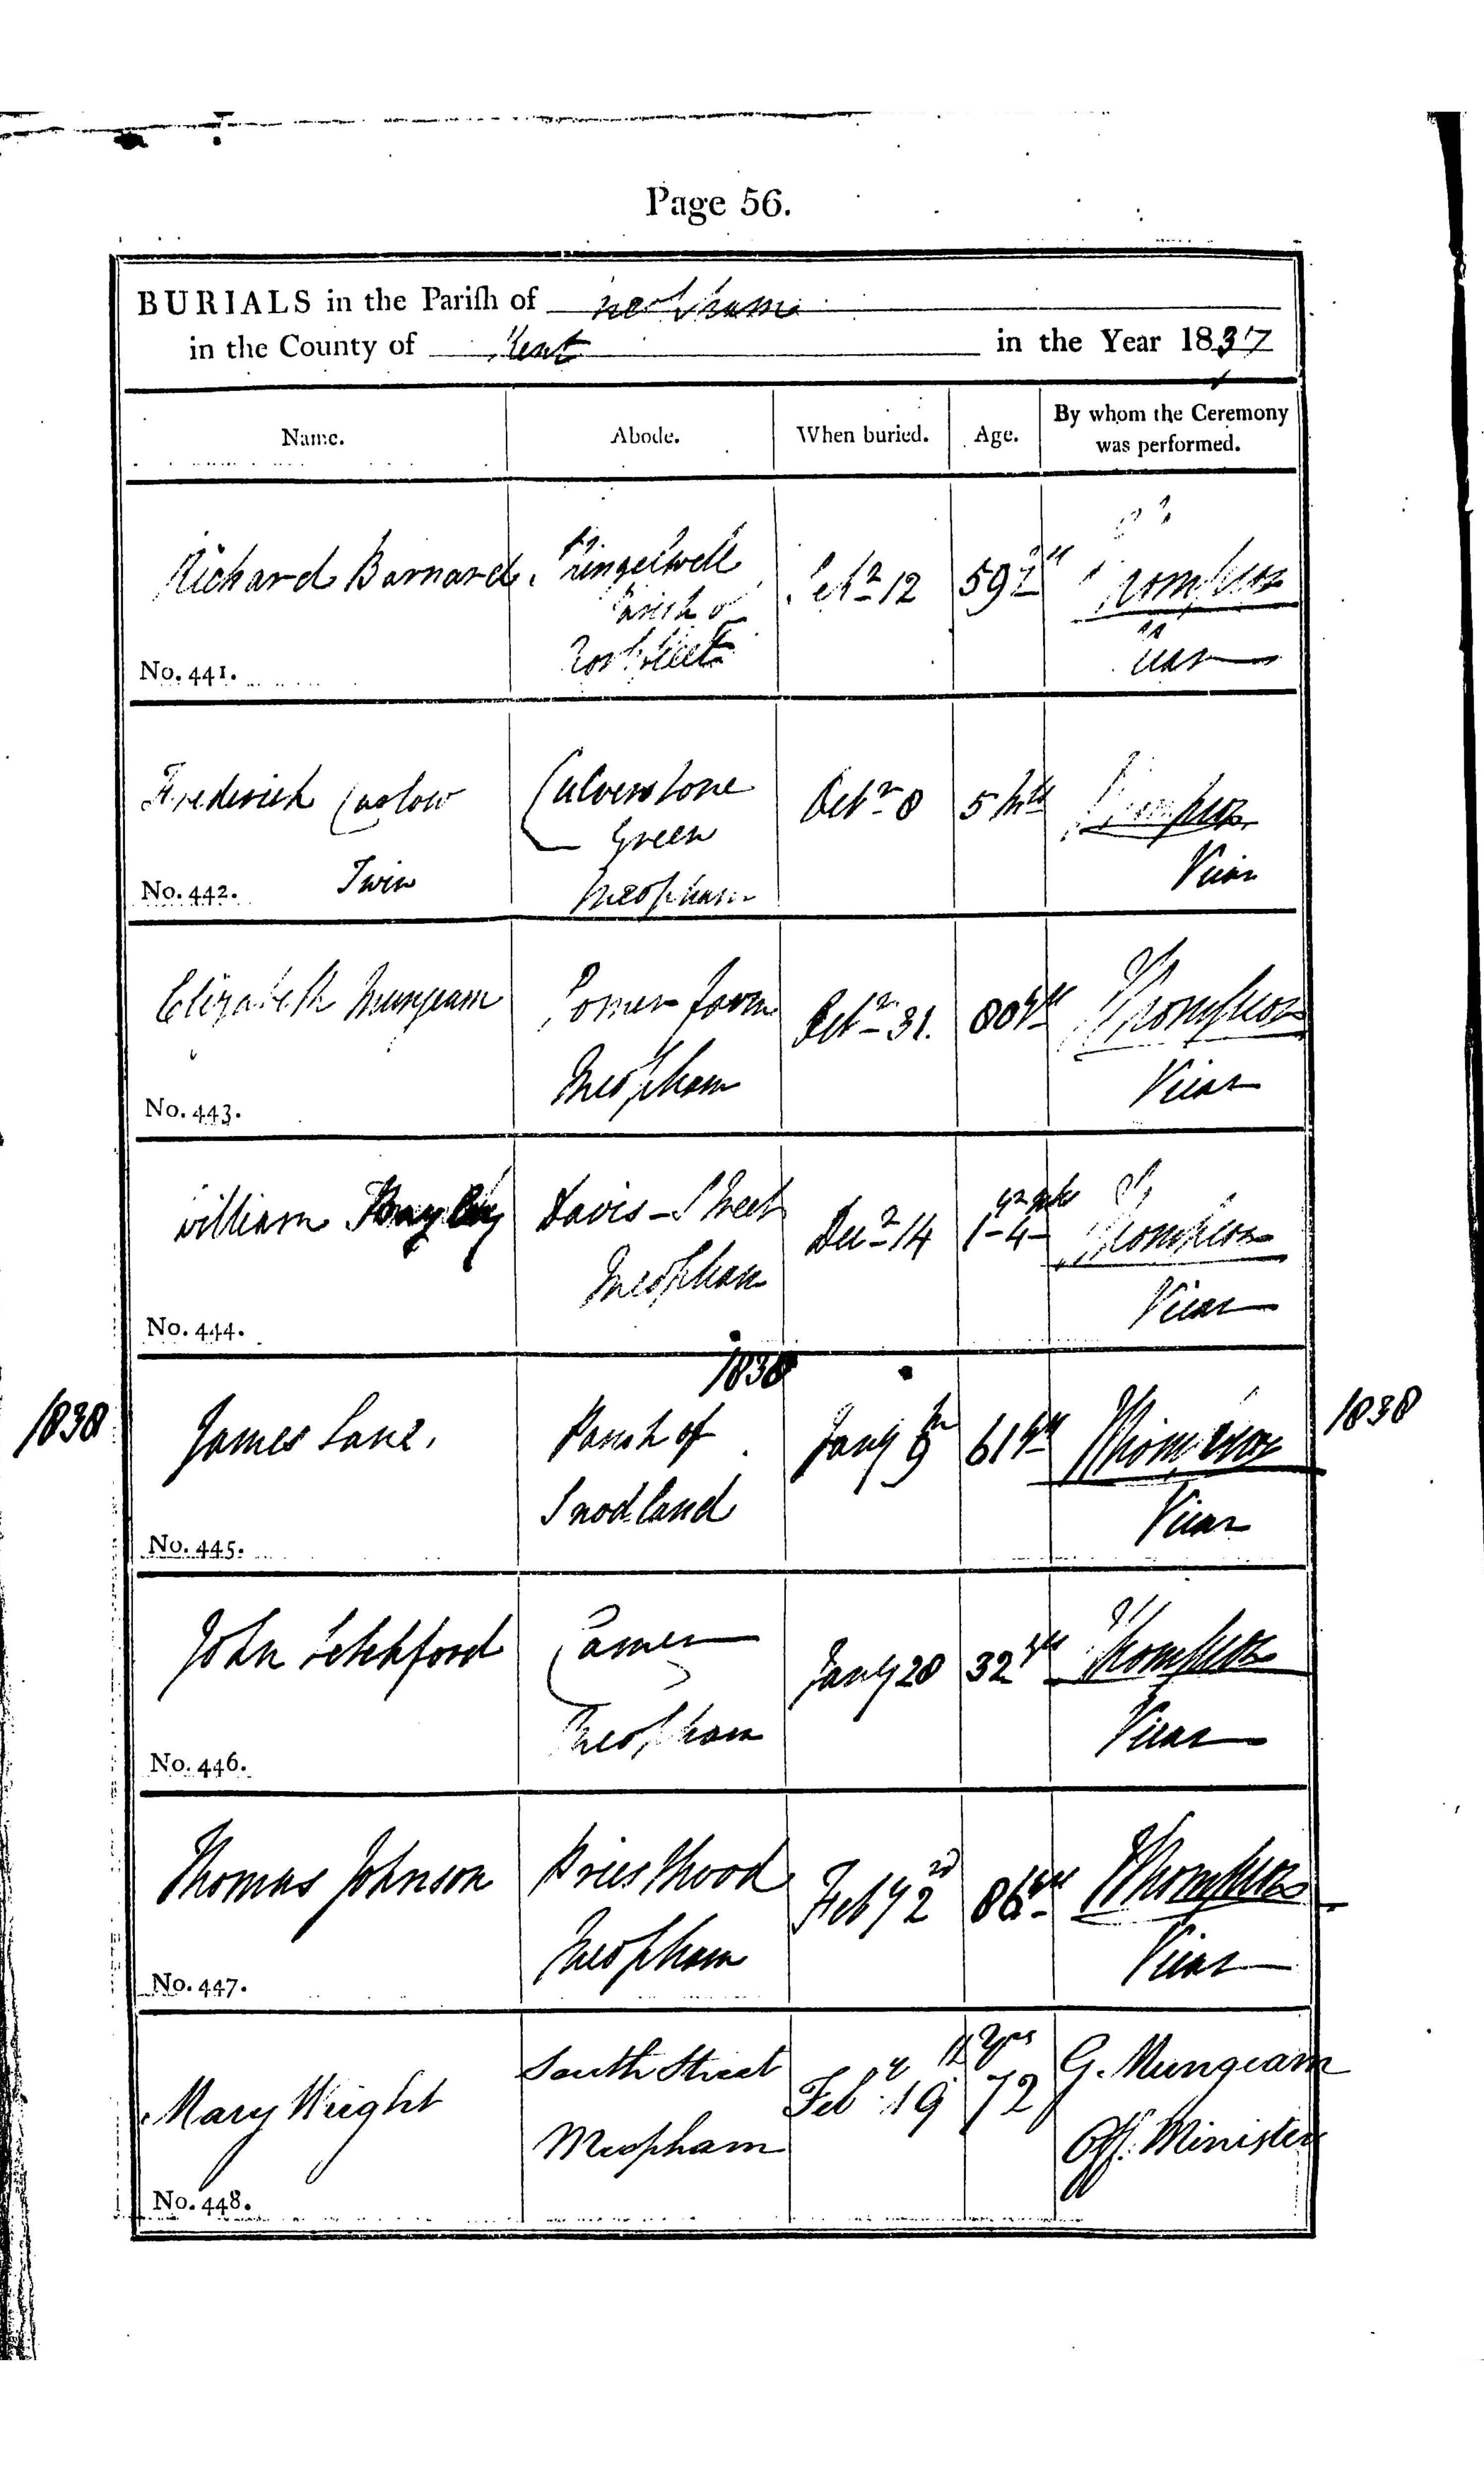 Page 56.
BURIALS in the Parish of Meopham
in the County of Kent in the Year 1837
Name. Abode. When buried. Age. By whom the Ceremony
was performed.
Richard Barnard
Parish of
59
Thompson
Vicar
No. 441.
Frederick
Culverstone
Green
Meopham
Octr 8
5 Mts
Thompson
Vicar
Twin
No. 442.
Elizabeth Mungeam
Farm
Meopham
Octr 31.
80 yrs
Thompson
Vicar
No. 443.
William
Davis-Street
Meopham
Decr 14
1-4-
Thompson
Vicar
No. 444.
1838
1838
James Lane.
Parish of
Snodland
Jany
61 yrs
Thompson
Vicar
1838
No. 445.
John Letchford
Camer
Meopham
Jany 28
32 yrs
Thompson
Vicar
No. 446.
Thomas Johnson
Priestwood
Meopham
Feby 2nd
86 yrs
Thompson
Vicar
No. 447.
Mary Wright
South Street
Meopham
Feby 19
72 yrs
G. Mungeam
Off. Minister
No. 448.